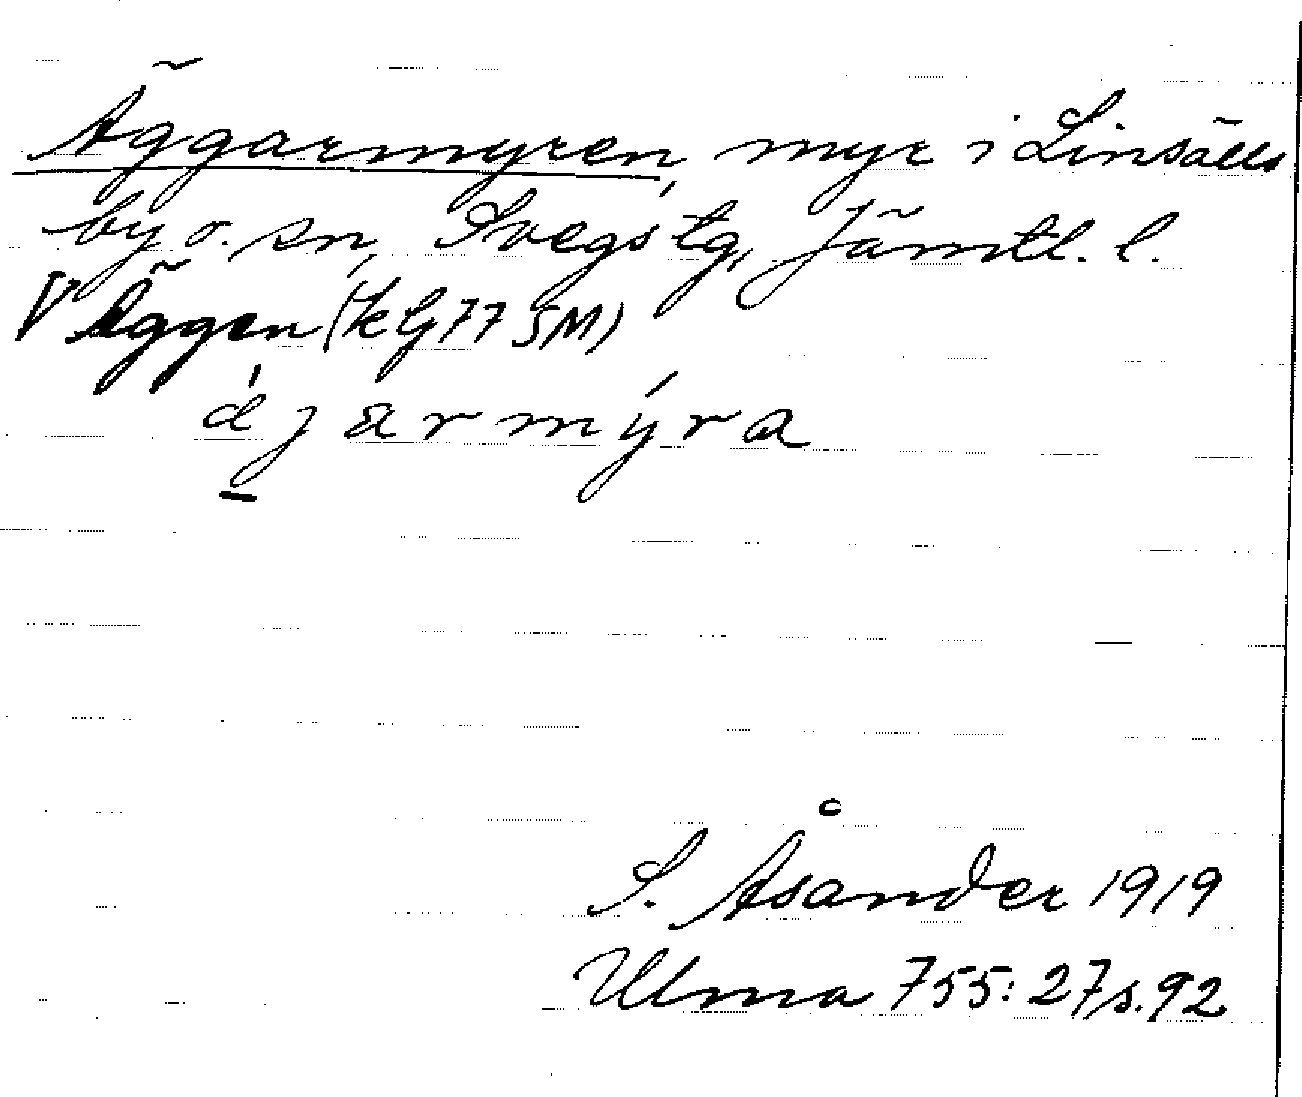 Äggarmyren, myr i Linsälls
by o. sn, Svegs tg, Jämtl. l.
V Äggen (kG77 SM)
ǽjarmýra
S. Åsander 1919
Ulma 755:27 s. 92